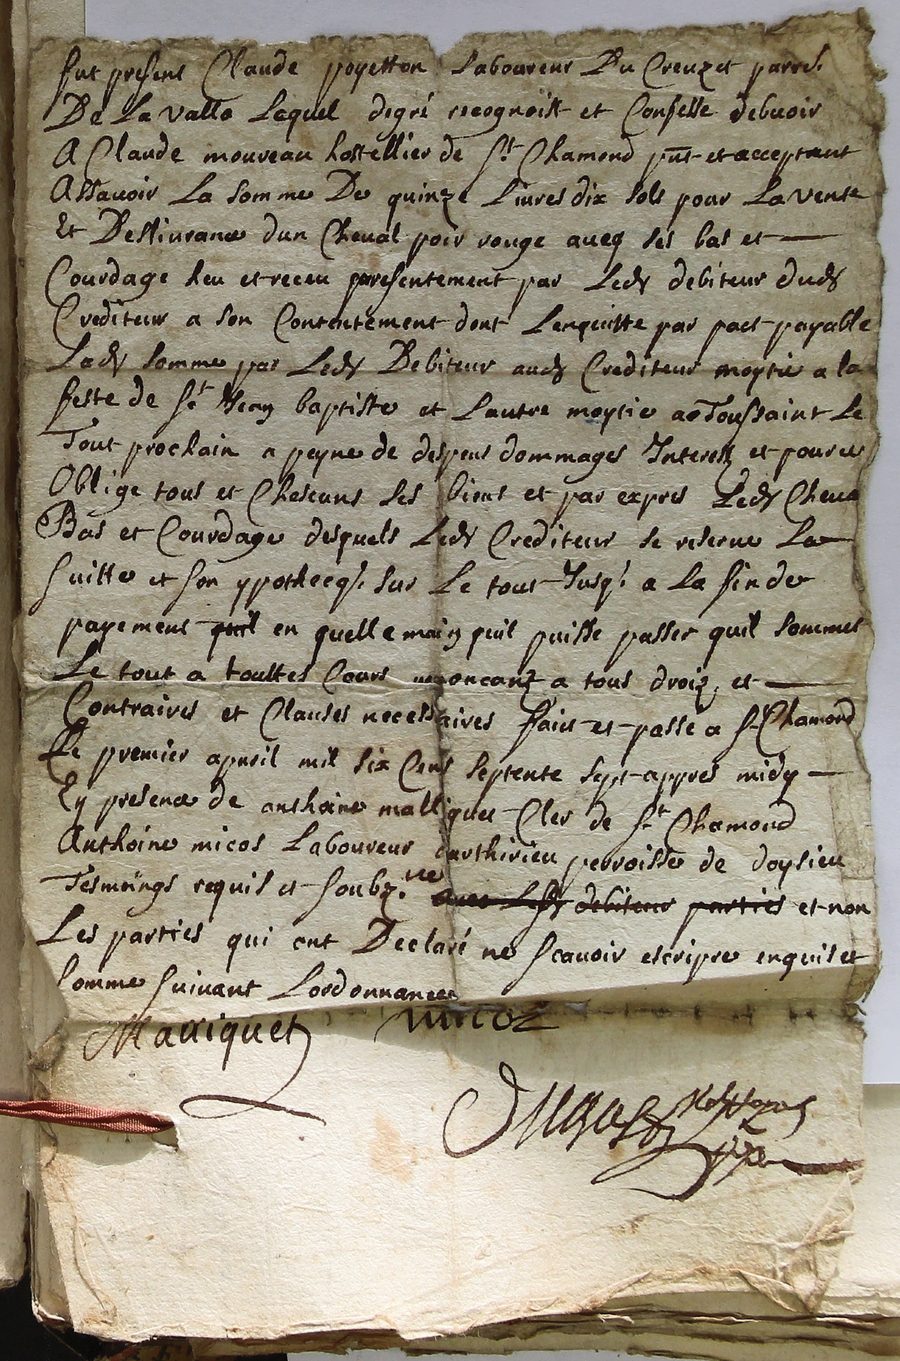 fut present Claude poyetton Laboureur Du Creuzet parr.
De La valla Lequel degré recognoist et Confesse debvoir
A Claude mouveau hostellier de St Chamond pnt et acceptant
Assavoir La somme De quinze Livres dix sols pour La vente
Et Deslivrance dun Cheval poir rouge aueq ses bas et
Courdage heu et receu presentement par Ledt debiteur dudt
Crediteur a son Contentement dont Lenquitte par pact payable
Ladt somme par Ledt Debiteur audt Crediteur moytie a la
feste de St Jean baptiste et Lautre moytie a Toussaint Le
Tout prochain a peyne de despens dommages Interestz et pour ce
Oblige tous et Chascuns ses biens et par expres Ledt Cheval
Bas et Courdage desquels Ledt Crediteur se reserve La
suitte et son ypothecq. sur Le tout Jusq. a La fin de
payement quil en quelle main quil puisse passer quil sommet
Le tout a touttes Cours renoncant a tous droiz et
Contraires et Clauses necessaires faict et passe a St Chamond
Le premier apvril mil six Cens septente sept appres midy
En presence de anthoine malliquet Cler de St Chamond
Anthoine micol Laboureur parroisse de doysieu
Tesmoings requis et soubz.ne avec Ledt debiteur parties et non
Les parties qui ont Declaré ne scavoir escripre enquis et
somme suivant Lordonnance
Malliquet micol
Dugas